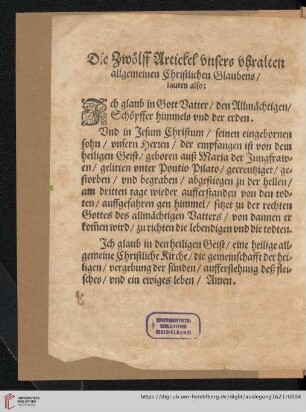 Die Zwölff Artickel vnsers vhralten
allgemeinen Christlichen Glaubens/
lauten also:
Jch glaub in Gott Vatter/ den Allmächtigen/
Schöpffer himmels vnd der erden.
Vnd in Jesum Christum/ seinen eingebornen
sohn/ vnsern Herren/ der empfangen ist von dem
heiligen Geist/ geboren auß Maria der Jungfraw-
en/ gelitten vnter Pontio Pilato/ gecreutziget/ ge-
storben/ vnd begraben/ abgestiegen zu der hellen/
am dritten tage wieder aufferstanden von den tod-
ten/ auffgefahren gen himmel/ sitzet zu der rechten
Gottes des allmächtigen Vatters/ von dannen er
kom̃en wird/ zu richten die lebendigen vnd die todten.
Jch glaub in den heiligen Geist/ eine heilige all-
gemeine Christliche Kirche/ die gemeinschafft der hei-
ligen/ vergebung der sünden/ aufferstehung deß flei-
sches/ vnd ein ewiges leben/ Amen.
UNIVERSITÄTS-
BIBLIOTHEK
HEIDELBERG
UNIVERSITÄTS-
BIBLIOTHEK
HEIDELBERG
https://digi.ub.uni-heidelberg.de/diglit/auslegung1621/0004